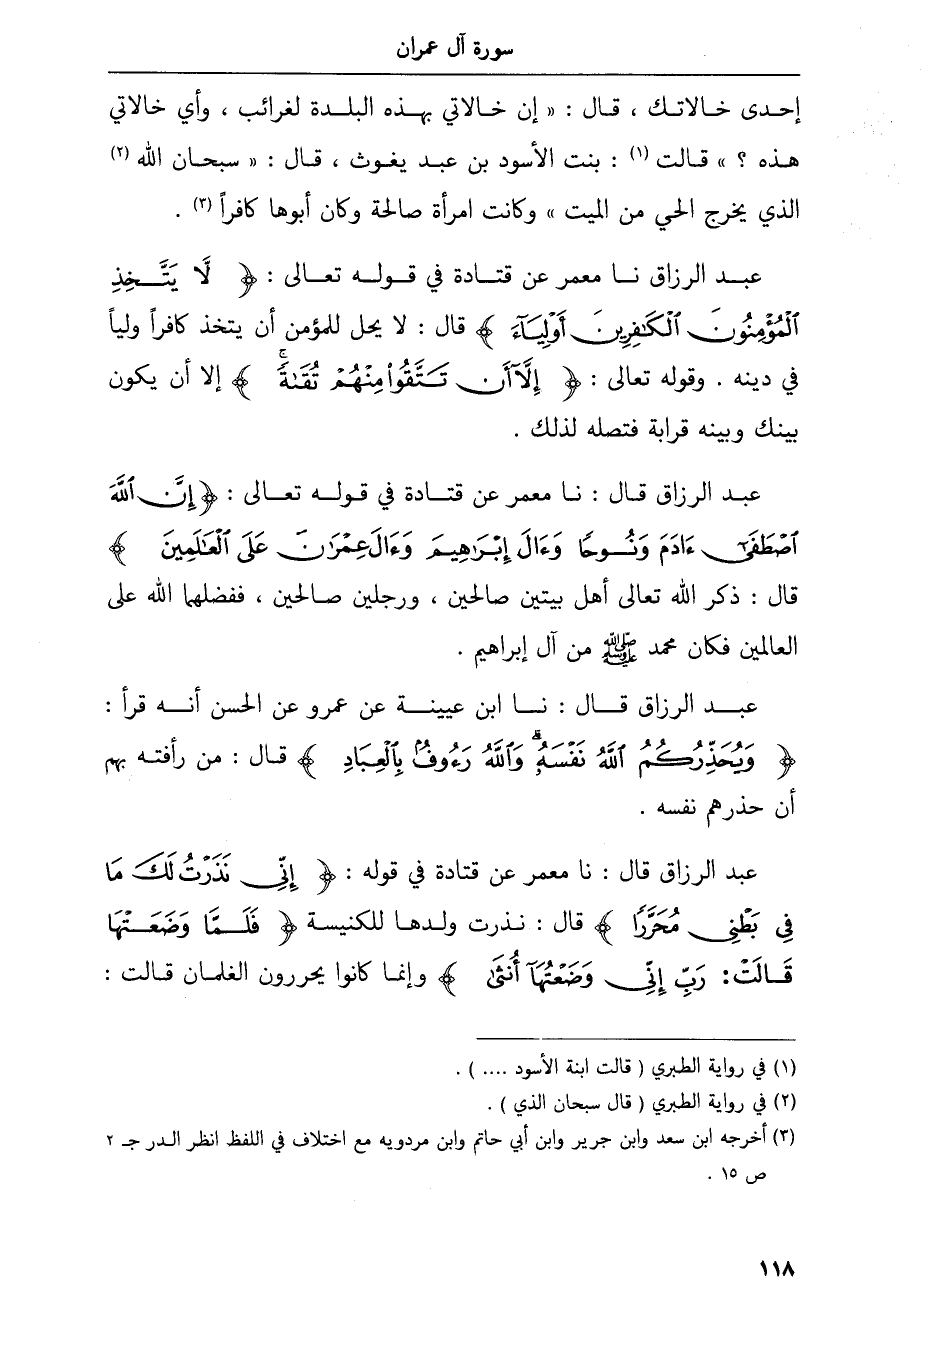 سورة آل عمران
إحدى خالاتك ، قال : « إن خالاتي بهذه البلدة لغرائب ، وأي خالاتي
هذه ؟ » قالت (١) : بنت الأسود بن عبد يغوث ، قال : « سبحان الله (٢)
الذي يخرج الحي من الميت » وكانت امرأة صالحة وكان أبوها كافراً (٣) .
عبد الرزاق نا معمر عن قتادة في قوله تعالى : ﴿ لَّا يَتَّخِذِ
ٱلْمُؤْمِنُونَ ٱلْكَٰفِرِينَ أَوْلِيَآءَ ﴾ قال : لا يحل للمؤمن أن يتخذ كافراً ولياً
في دينه . وقوله تعالى : ﴿ إِلَّآ أَن تَتَّقُوا۟ مِنْهُمْ تُقَىٰةً ﴾ إلا أن يكون
بينك وبينه قرابة فتصله لذلك .
عبد الرزاق قال : نا معمر عن قتادة في قوله تعالى : ﴿ إِنَّ ٱللَّهَ
ٱصْطَفَىٰٓ ءَادَمَ وَنُوحًا وَءَالَ إِبْرَٰهِيمَ وَءَالَ عِمْرَٰنَ عَلَى ٱلْعَٰلَمِينَ ﴾
قال : ذكر الله تعالى أهل بيتين صالحين ، ورجلين صالحين ، ففضلهما الله على
العالمين فكان محمد ﷺ من آل إبراهيم .
عبد الرزاق قال : نا ابن عيينة عن عمرو عن الحسن أنه قرأ :
﴿ وَيُحَذِّرُكُمُ ٱللَّهُ نَفْسَهُۥ وَٱللَّهُ رَءُوفٌۢ بِٱلْعِبَادِ ﴾ قال : من رأفته بهم
أن حذرهم نفسه .
عبد الرزاق قال : نا معمر عن قتادة في قوله : ﴿ إِنِّى نَذَرْتُ لَكَ مَا
فِى بَطْنِى مُحَرَّرًا ﴾ قال : نذرت ولدها للكنيسة ﴿ فَلَمَّا وَضَعَتْهَا
قَالَتْ : رَبِّ إِنِّى وَضَعْتُهَآ أُنثَىٰ ﴾ وإنما كانوا يحررون الغلمان قالت :
(١) في رواية الطبري ( قالت ابنة الأسود .... ) .
(٢) في رواية الطبري ( قال سبحان الذي ) .
(٣) أخرجه ابن سعد وابن جرير وابن أبي حاتم وابن مردويه مع اختلاف في اللفظ انظر الدر جـ ٢
ص ١٥ .
١١٨